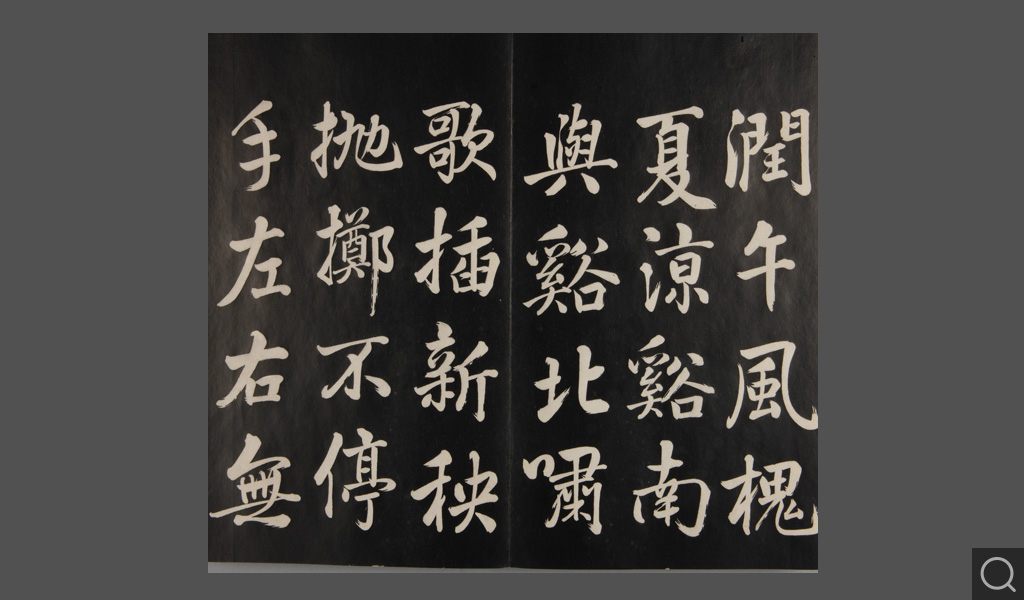 潤午風槐
夏涼谿南
與谿北嘯
歌插新秧
拋擲不停
手左右無